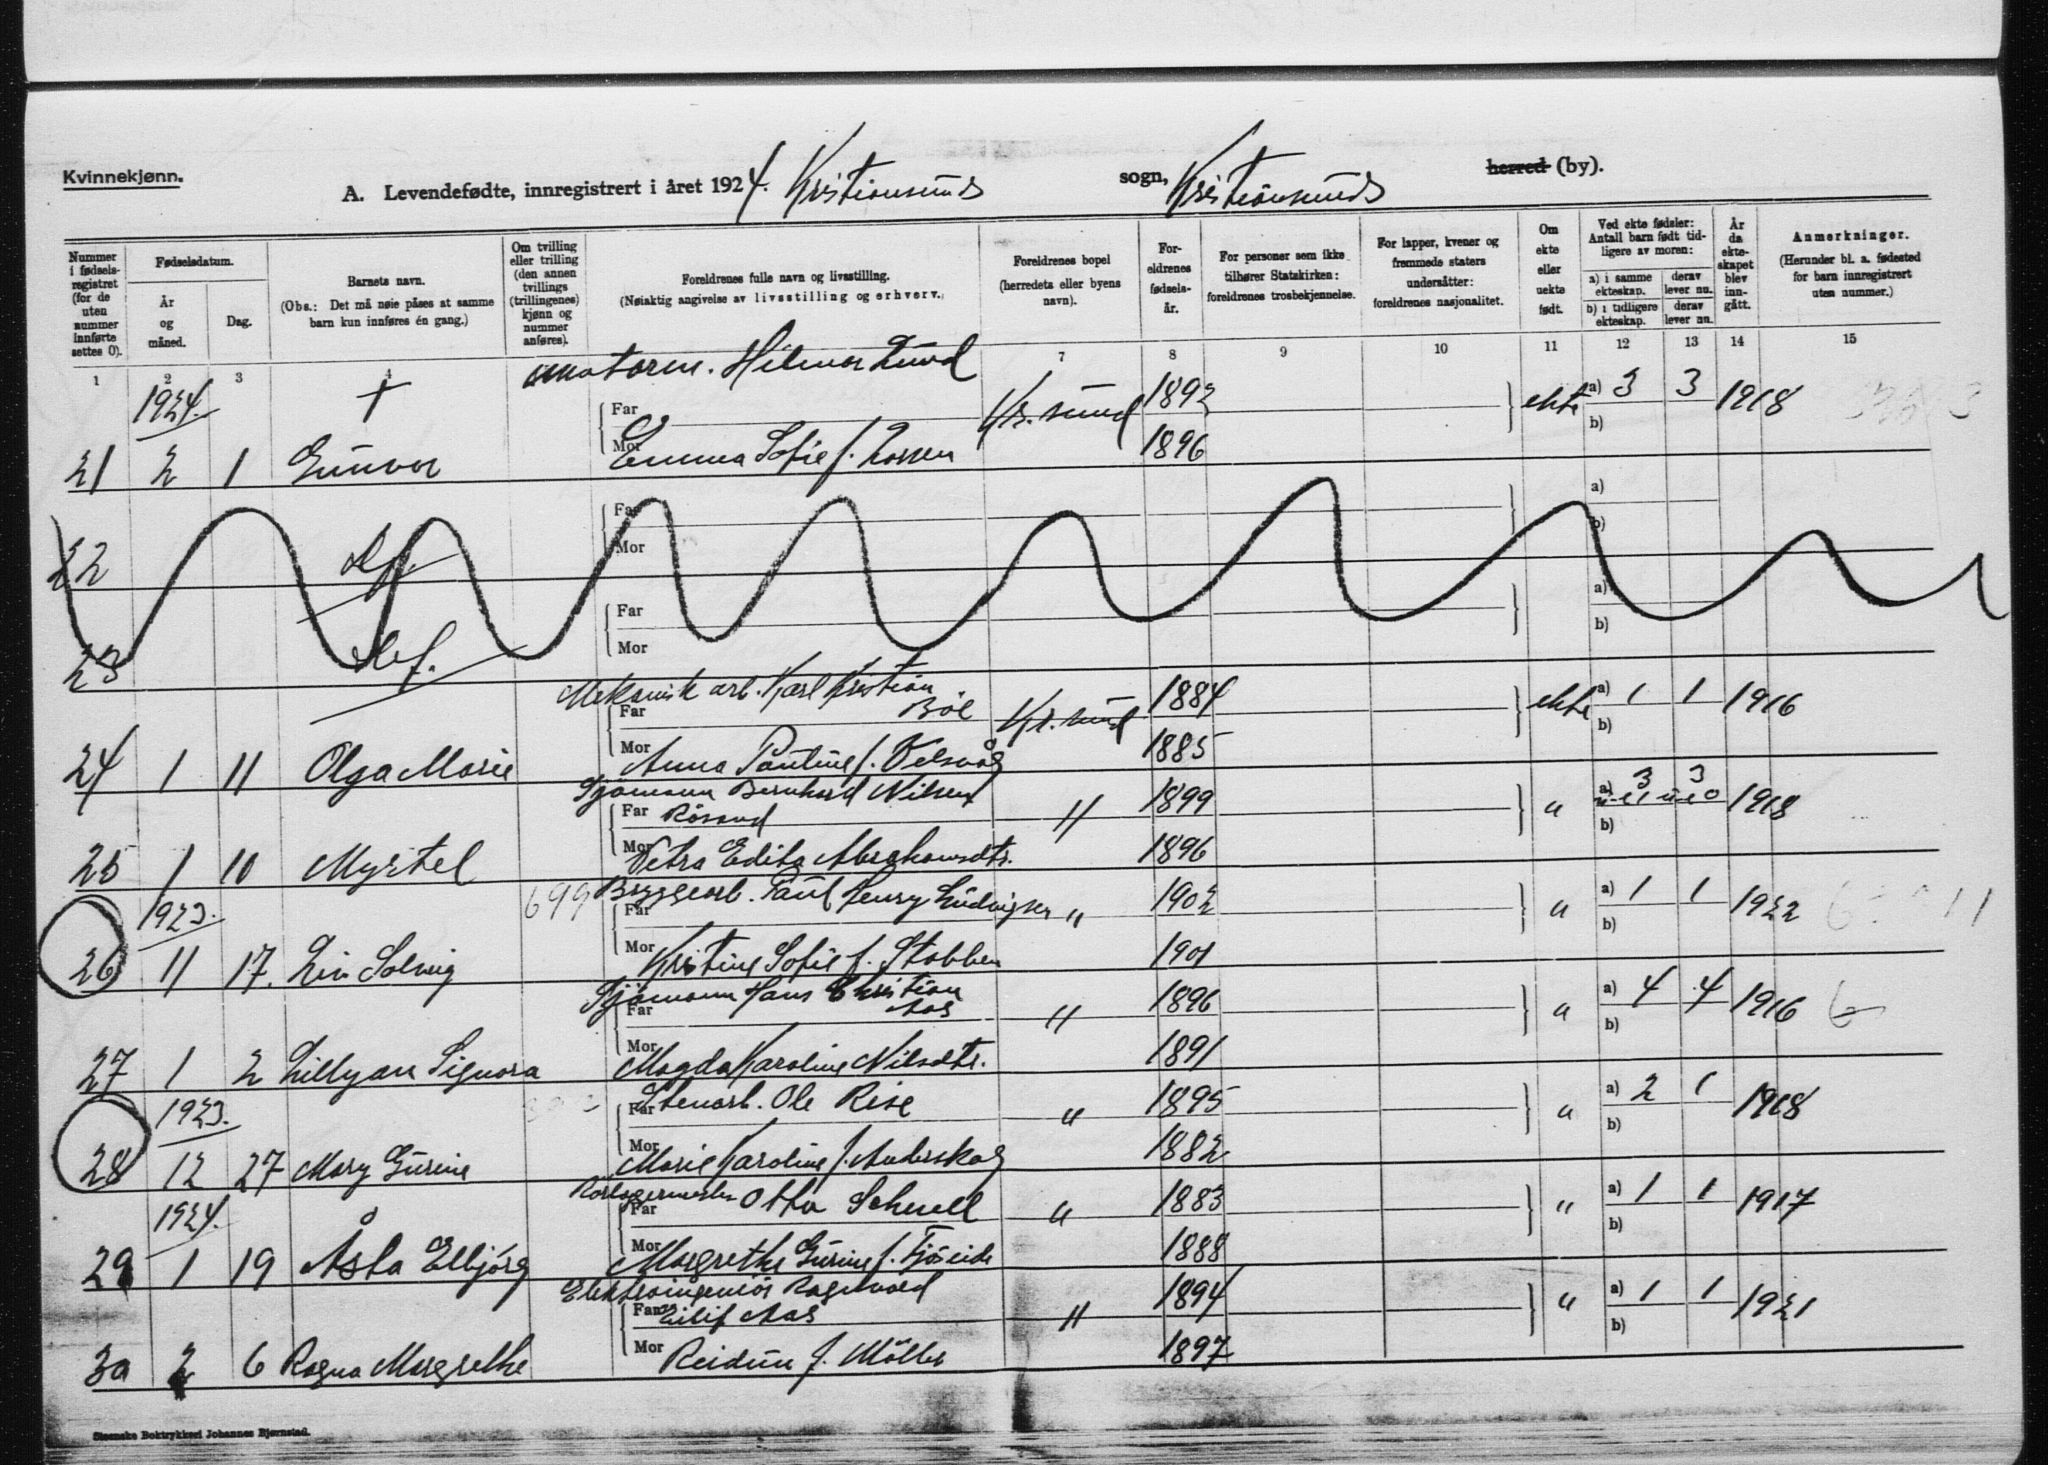 Kvinnekjønn.
A. Levendefødte, innregistrert i året 1924. Kristiansunds sogn, Kristiansunds herred (by).
Nummer i fødselsregistret (for de uten nummer innførte settes 0).
Fødselsdatum.
År og måned.
Dag.
Barnets navn.
(Obs.: Det må nøie påses at samme barn kun innføres én gang.)
Om tvilling eller trilling (den annen tvillings (trillingenes) kjønn og nummer anføres).
Foreldrenes fulle navn og livsstilling.
(Nøiaktig angivelse av livsstilling og erhverv.)
Foreldrenes bopel (herredets eller byens navn).
Foreldrenes fødselsår.
For personer som ikke tilhører Statskirken: foreldrenes trosbekjennelse.
For lapper, kvener og fremmede staters undersåtter: foreldrenes nasjonalitet.
Om ekte eller uekte født.
Ved ekte fødsler: Antall barn født tidligere av moren:
a) i samme ekteskap. derav lever nu.
b) i tidligere ekteskap. derav lever nu.
År da ekteskapet blev inngått.
Anmerkninger.
(Herunder bl. a. fødested for barn innregistrert uten nummer.)
1 2 3 4 7 8 9 10 11 12 13 14 15
1924. † Hilmar Lund
Far Kr.sund 1892 ekte a) 3 3 1918
b)
21 2 1 Gunvor Mor Emma Sofie f. 1896
Far a)
22 Mor b)
Far a)
23 Mor b)
Mekanisk arb. Karl Kristian
Far Böe Kr.sund 1884 ekte a) 1 1 1916
b)
24 1 11 Olga Marie Mor Anna Pauline f. 1885
Sjömann Bernhard Nilsen
Far Rösand " 1899 " a) 3 3 1918
b)
25 1 10 Myrtel Mor Petra Edita Abrahamsdtr. 1896
1923. 699 Bryggearb. Paul Henry Ludvigsen
Far " 1902 " a) 1 1 1922
b)
26 11 17. Liv Solveig Mor Kristine Sofie f. Stobben 1901
Sjömann Hans Christian
Far Aas " 1896 " a) 4 4 1916 6
b)
27 1 2 Lillyan Signora Mor Magda Karoline Nilsdtr. 1891
1923. Stenarb. Ole Rise
Far " 1895 " a) 2 1 1918
b)
28 12 27 Mary Gurine Mor Marie Karoline f. Anderskog 1882
1924. Otto Schnell
Far " 1883 " a) 1 1 1917
b)
29 1 19 Åsta Elbjörg Mor Margrethe Gurine f. Fjöseide 1888
Elektroingeniör Ragnvald
Far Eilif Aas " 1894 " a) 1 1 1921
b)
30 2 6 Ragna Margrethe Mor Reidun f. Möller 1897
Steenske Boktrykkeri Johannes Bjørnstad.